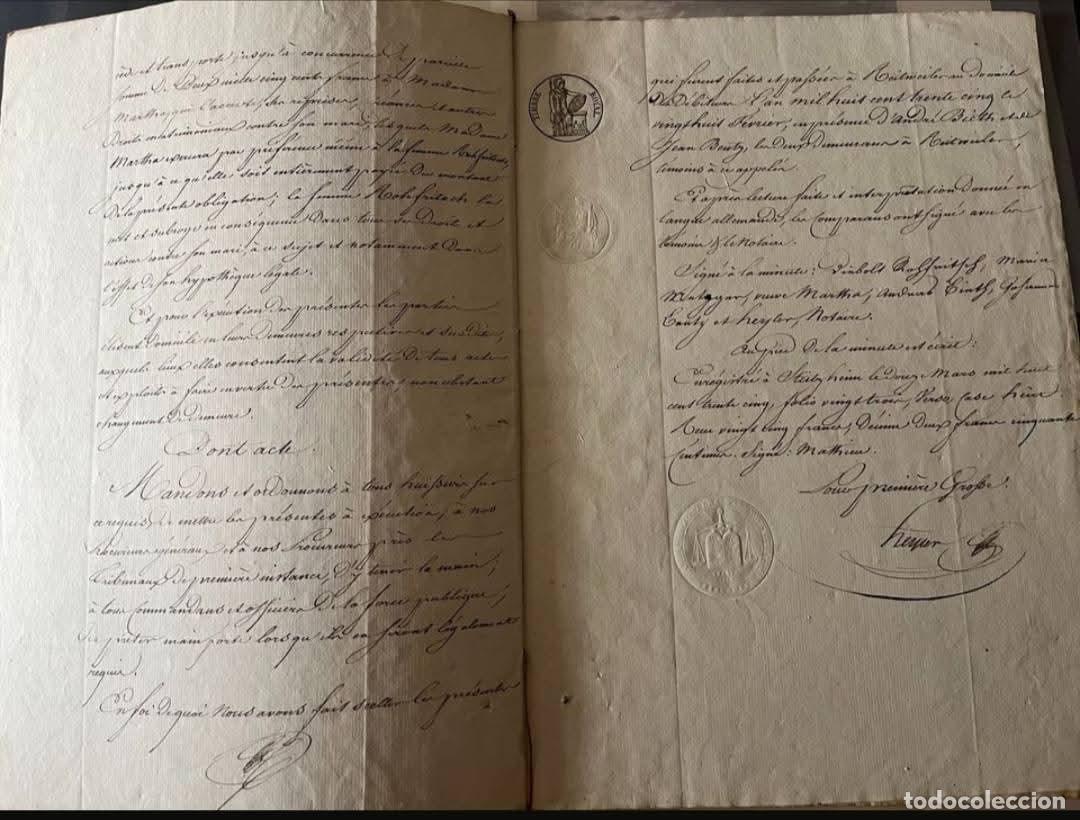 cède et transporte jusqu'à concurrence de pareille
somme de Deux mille cinq cents francs à Madame
Martha, qui l'accepte, ses reprises, créances et autres
Droits matrimoniaux contre son mari, lesquels Madame
Martha exercera par préférence même à la femme Rohfritsch,
jusqu'à ce qu'elle soit entièrement payée du montant
De la présente obligation; la femme Rohfritsch la
met et subroge en conséquence Dans tous ses Droits et
actions contre son mari, à ce sujet et notamment Dans
l'effet de son hypothèque légale.
Et pour l'exécution des présentes les parties
élisent domicile en leurs demeures respectives et susdites,
auxquels lieux elles consentent la validité de tous actes
et exploits à faire en vertu des présentes, nonobstant
changement de demeure.
Dont acte.
Mandons et ordonnons à tous huissiers sur
ce requis, de mettre les présentes à exécution, à nos
Procureurs généraux et à nos Procureurs près les
Tribunaux de première instance, d'y tenir la main;
à tous Commandans et officiers de la force publique,
de prêter main forte lorsqu'ils en seront légalement
requis.
En foi de quoi nous avons fait sceller les présentes
TIMBRE ROYAL
qui furent faites et passées à au domicile
Du Débiteur l'an mil huit cent trente cinq le
vingt huit Février, en présence d'André Bieth, et de
Jean les Deux demeurans à
témoins à ce appelés.
Et après lecture faite et interprétation donnée en
langue allemande, les Comparans ont signé avec les
témoins & le Notaire.
Signé à la minute: Diebolt Rohfritsch, Maria
Metzger, veuve Martha, Andreas Bieth,
et Keyser, Notaire.
Au pied de la minute est écrit:
Enregistré à le Douze Mars mil huit
cent trente cinq, folio vingt trois, Verso, Case huit.
Reçu vingt cinq francs, Décime Deux francs cinquante
Centimes. Signé: Matthieu.
Pour première Grosse.
Keyser
todocoleccion